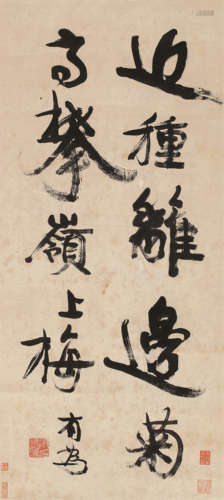 近種離邊菊
高攀嶺上梅
有為